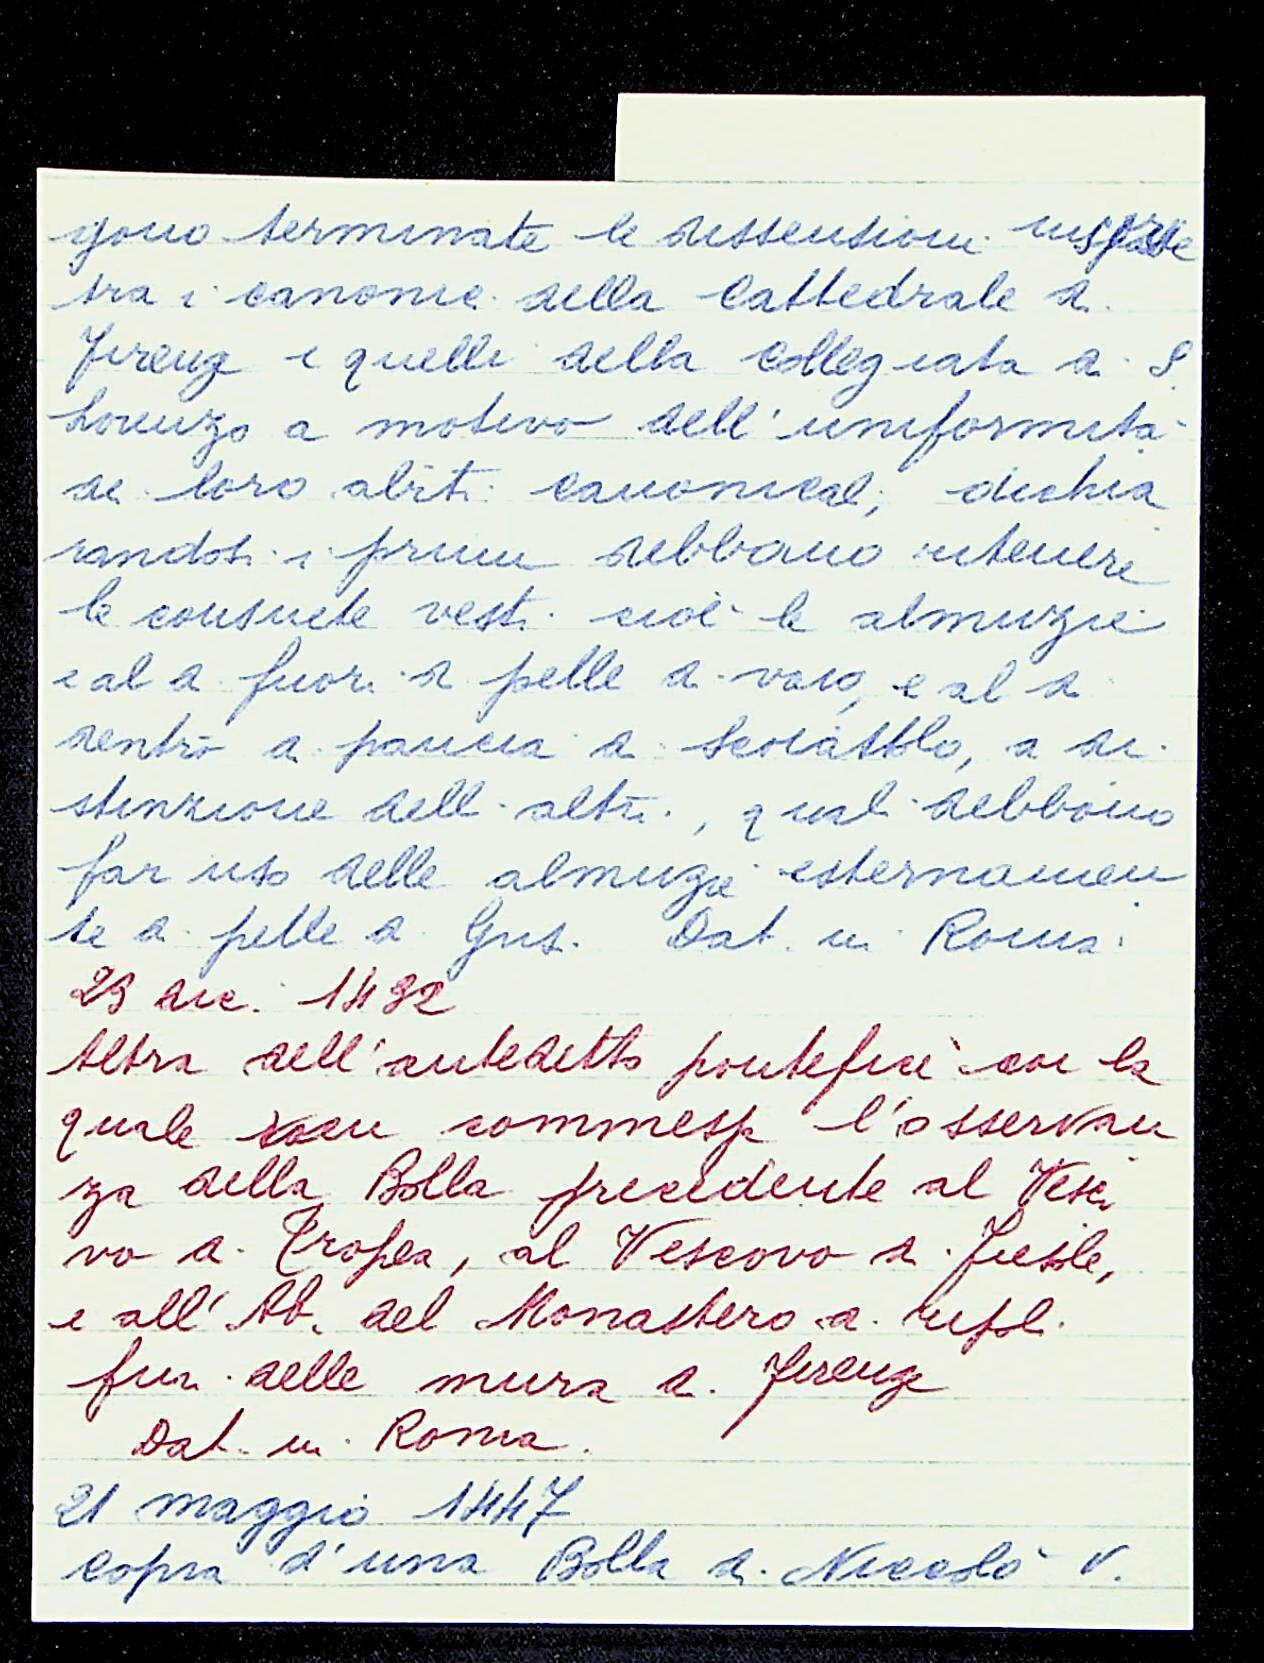 gono terminate le dissensioni insorte
tra i canonici della Cattedrale di
Firenze e quelli della Collegiata di S.
Lorenzo a motivo dell'uniformità
dei loro abiti canonicali, dichia
randosi i primi debbano ritenere
le consuete vesti cioè le almuzie
e al di fuori di pelle di vaio, e al di
dentro di pancia di scoiattolo, a di
stinzione dell altri, quali debbono
far uso delle almuzie esternamen
te di pelle di Gris. Dat. in Roma
29 dic. 1432
Altra dell'antedetto pontefice con la
quale vien commessa l'osservan
za della Bolla precedente al Vesco
vo di Tropea, al Vescovo di Fiesole,
e all'Ab. del Monastero di
furi delle mura di Firenze
Dat. in Roma.
21 maggio 1447
copia d'una Bolla di Niccolò V.